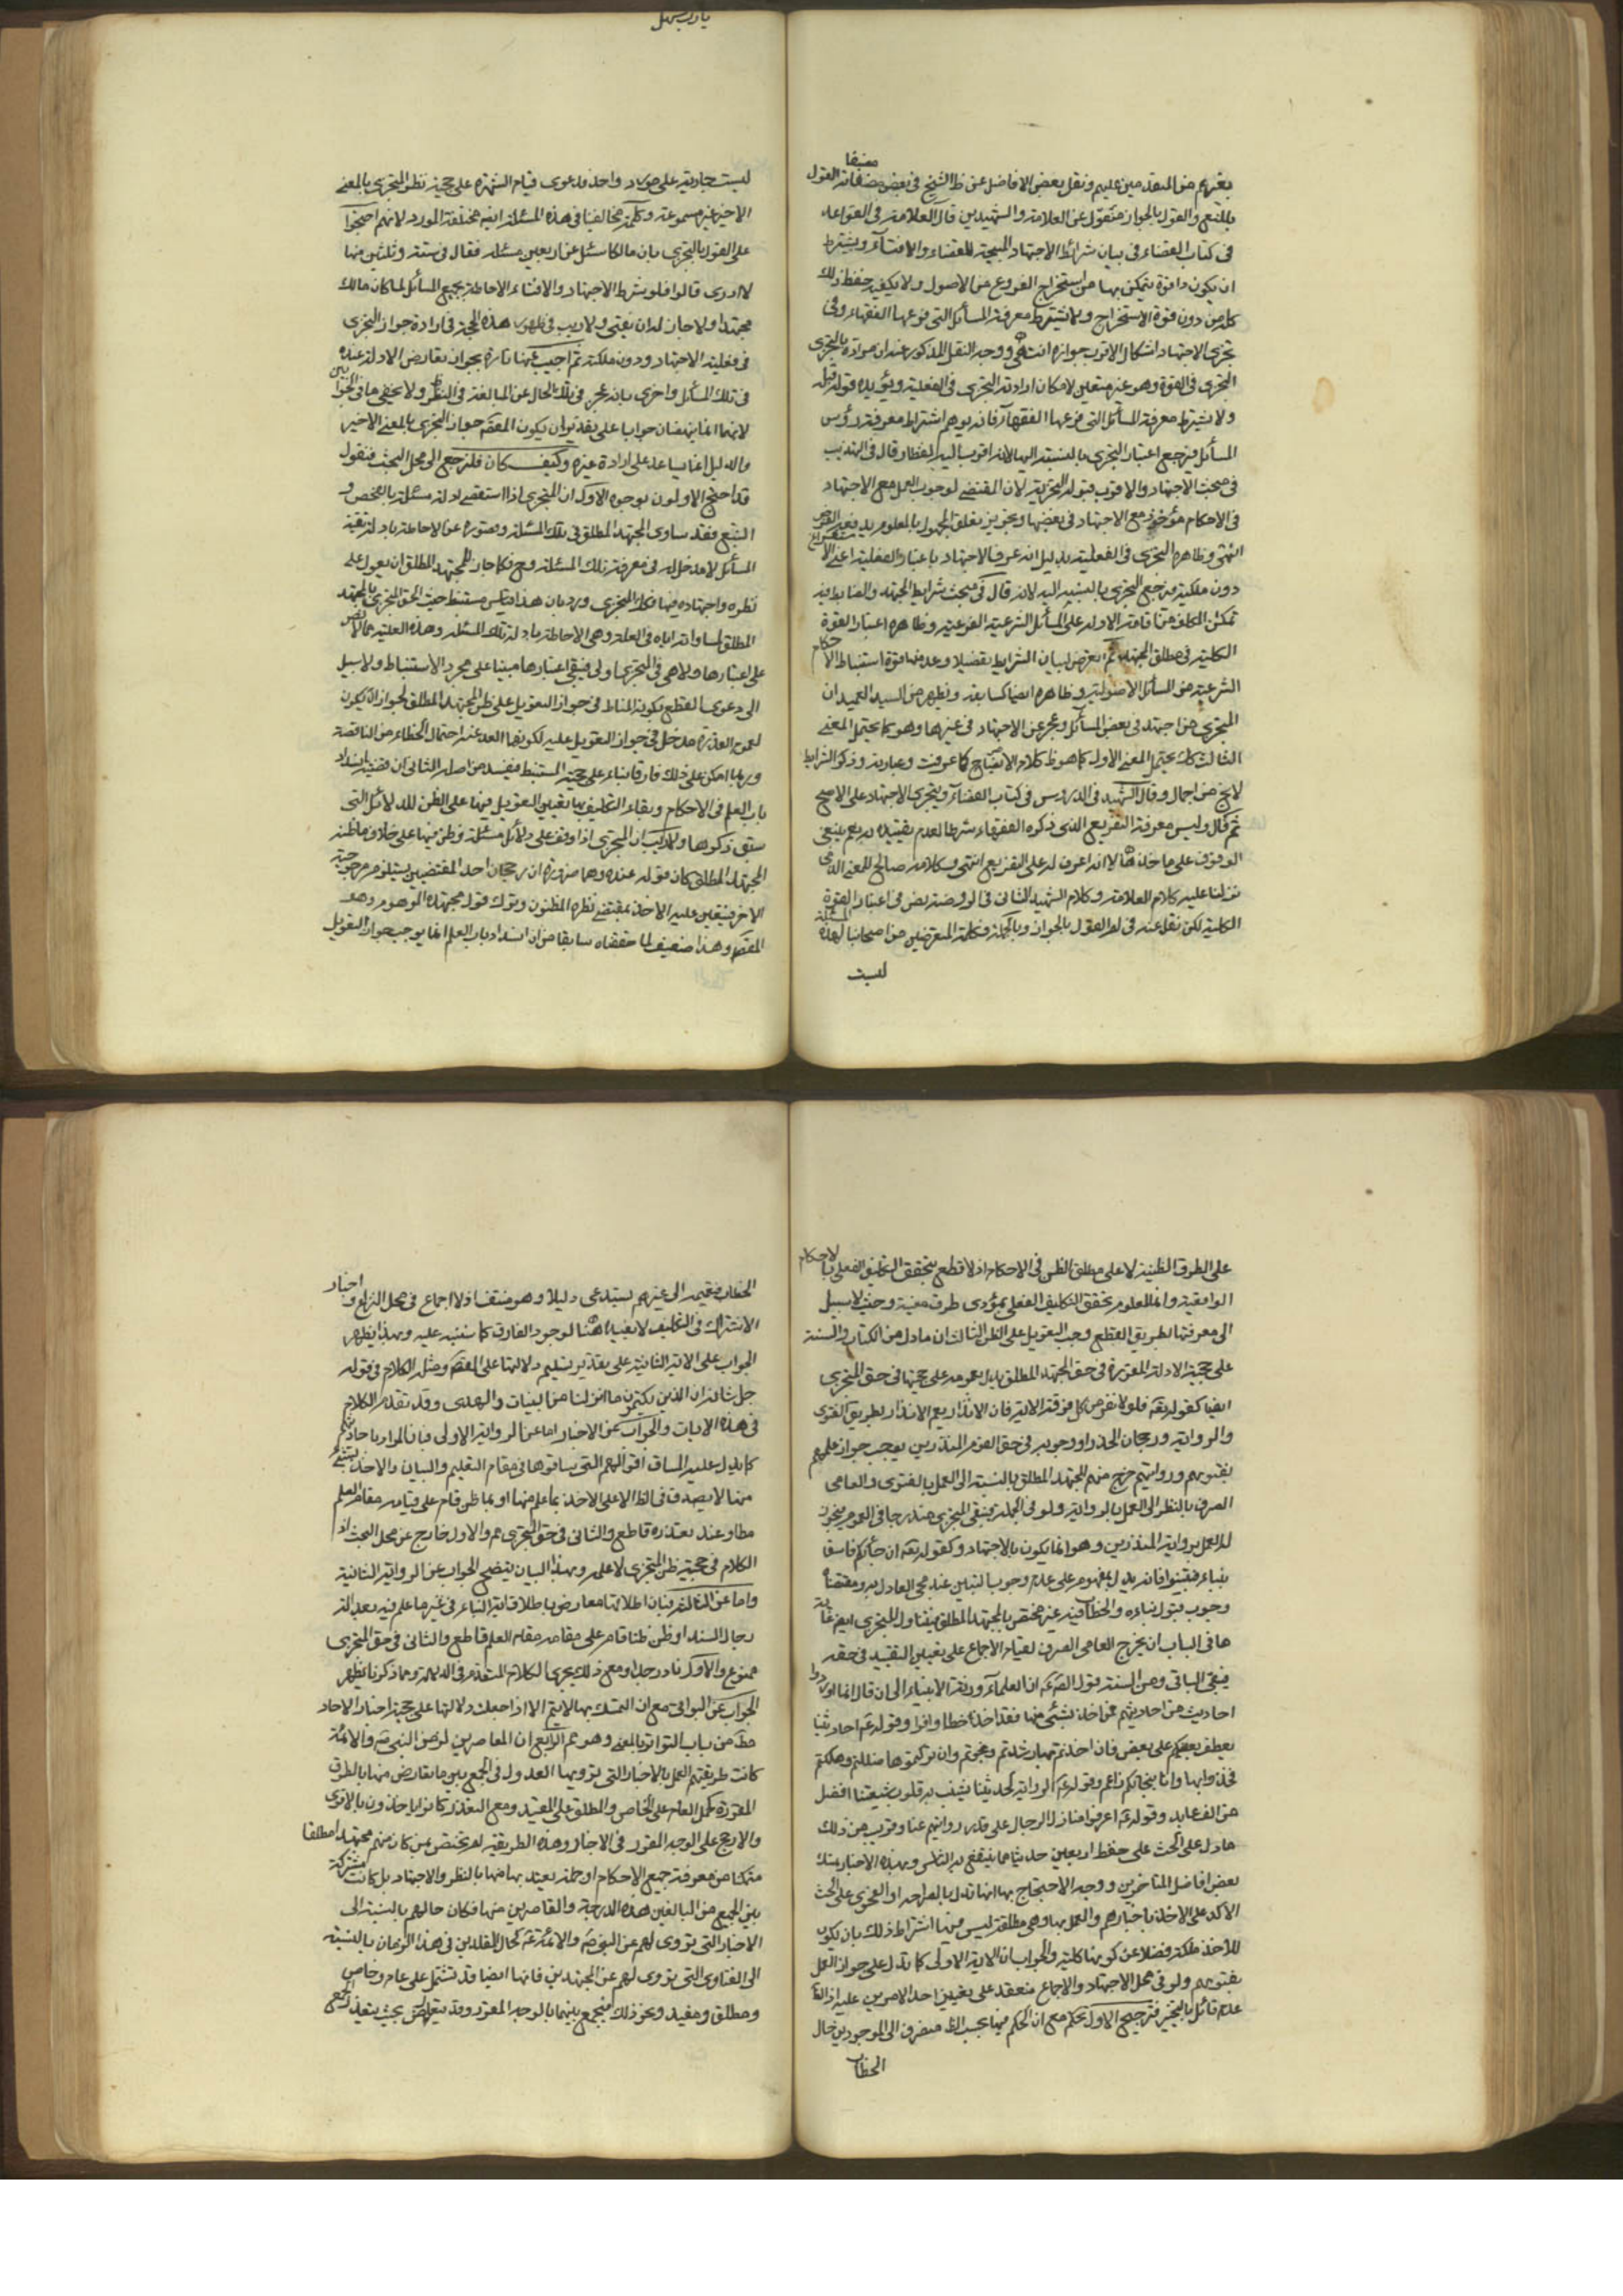 بغيرهم من المتقدمين عليهم ونقل بعض الافاضل عن ظ الشيخ في بعض مصنفاته القول
بالمنع والقول بالجواز منقول عن العلامة والشهيدين قال العلامة في القواعد
في كتاب القضاء في بيان شرائط الاجتهاد المبيحة للقضاء والافتاء ويشترط
ان يكون ذا قوة يتمكن بها من استخراج الفروع من الاصول ولا يكفيه حفظ ذلك
كله من دون قوة الاستخراج ولا يشترط معرفة المسائل التي فرعها الفقهاء وفي
تجزي الاجتهاد اشكال الاقرب جوازه انتهى ووجه النقل المذكور عنه ان مراده بالتجزي
التجزي في القوة وهو غير متعين لامكان ارادته التجزي في الفعلية ويؤيده قوله قبله
ولا يشترط معرفة المسائل التي فرعها الفقهاء فانه يوهم اشتراط معرفة رؤس
المسائل فيرجع اعتبار التجزي بالنسبة اليها لانه اقرب اليه لفظا وقال في التهذيب
في مبحث الاجتهاد والاقرب قبوله التجزية لان المقتضي لوجوب العمل مع الاجتهاد
في الاحكام موجود مع الاجتهاد في بعضها وتجويز تعلق المجهول بالمعلوم يدفعه الفرض
انتهى وظاهره التجزي في الفعلية بدليل انه عرف الاجتهاد باعتبار الفعلية اعني الاستفراغ
دون ملكيته فيرجع التجزي بالنسبة اليه لانه قال في مبحث شرايط المجتهد والضابط فيه
تمكن المكلف من اقامة الادلة على المسائل الشرعية الفرعية وظاهره اعتبار القوة
الكلية في مطلق المجتهد ثم تعرض لبيان الشرايط تفضيلا وعد منها قوة استنباط الاحكام
الشرعية من المسائل الاصولية وظاهره ايضا كسابقه ويظهر من السيد العميد ان
المتجزي من اجتهد في بعض المسائل وعجز عن الاجتهاد في غيرها وهو كما يحتمل المعنى
الثالث كك يحتمل المعنى الاول كما هو ظ كلام الايضاح كما عرفت وعبارته وذكر الشرايط
لا يخ من اجمال وقال الشهيد في الدروس في كتاب القضاء ويتجزى الاجتهاد على الاصح
ثم قال وليس معرفة التفريع الذي ذكره الفقهاء شرطا لعدم تقييده به نعم ينبغي
الوقوف على ماخذها لانه اعون له على التفريع انتهى وكلامه صالح للمعنى الذي
نزلنا عليه كلام العلامة وكلام الشهيد الثاني في الروضة نص في اعتبار القوة
الكلية لكن نقل عنه في القول بالجواز وبالجملة فكلمة المتعرضين من اصحابنا لهذه المسئلة
ليست
ليست جارية على مورد واحد فدعوى قيام الشهرة على حجية نظر المتجزي بالمعنى
الاخير غير مسموعة وكلمة مخالفينا في هذه المسئلة ايض مختلفة المورد لانهم احتجوا
على القول بالتجزي بان مالكا سئل عن اربعين مسئلة فقال في ستة وثلثين منها
لا ادري قالوا فلو شرط الاجتهاد والافتاء الاحاطة بجميع المسائل لما كان مالك
مجتهدا ولا جاز له ان يفتي ولا ريب في ظهور هذه الحجة في ارادة جواز التجزي
في فعلية الاجتهاد ودون ملكته ثم اجيب عنها تارة بجواز تعارض الادلة عنده
في تلك المسائل واخرى بانه عجز في تلك الحال عن المبالغة في النظر ولا يخفى ما في الجوابين
لانهما انما ينهضان جوابا على تقدير ان يكون المقصود جواز التجزي بالمعنى الاخير
والدليل انما يساعد على ارادة غيره وكيف كان فلنرجع الى محل البحث فنقول
قد احتج الاولون بوجوه الاول ان المتجزي اذا استقصى ادلة مسئلة بالفحص و
التتبع فقد ساوى المجتهد المطلق في تلك المسئلة وقصوره عن الاحاطة بادلة بقية
المسائل لا مدخل له في معرفة تلك المسئلة وح فكما جاز للمجتهد المطلق ان يعول على
نظره واجتهاده فيها فكك المتجزي ورد بان هذا قياس مستنبط حيث الحق المتجزي بالمجتهد
المطلق لمساواته اياه في العلة وهي الاحاطة بادلة تلك المسئلة وهذه العلية مما لا نص
على اعتبارها ولا هي في المتجزي اولى فيبقى اعتبارها مبنيا على مجرد الاستنباط ولا سبيل
الى دعوى القطع بكونه المناط في جواز التعويل على ظن المجتهد المطلق لجواز ان يكون
لعموم القدرة مدخل في جواز التعويل عليه لكونها ابعد عند احتمال الخطاء من الناقصة
وربما امكن على ذلك فارقا بناء على حجية المستنبط فيفسد من اصله الثاني ان قضية انسداد
باب العلم في الاحكام وبقاء التكليف بها تعيين التعويل فيها على الظن للدلائل التي
سبق ذكرها ولا ريب ان المتجزي اذا وقف على دلائل مسئلة وظن فيها على خلاف ما ظنه
المجتهد المطلق كان قوله عنده وهما ضرورة ان رجحان احد المقتضيين يستلزم مرجوحية
الاخر فيتعين عليه الاخذ بمقتضى نظره المظنون وترك قول مجتهده الموهوم وهو
المقصود وهذا ضعيف لما حققناه سابقا من ان انسداد باب العلم انما يوجب جواز التعويل
على الطرق الظنية لا على مطلق الظن في الاحكام اذ لا قطع بتحقق التكليف الفعلي بالاحكام
الواقعية وانما المعلوم تحقق التكليف الفعلي بمؤدى طرق معينة وحيث لا سبيل
الى معرفتها بطريق القطع وجب التعويل على الظن الثالث ان ما دل من الكتاب والسنة
على حجية الادلة المقررة في حق المجتهد المطلق يدل بعمومه على حجيتها في حق المتجزي
ايضا كقوله تعالى فلولا نفر من كل فرقة الاية فان الانذار يعم الانذار بطريق الفتوى
والرواية ورجحان الحذر او وجوبه في حق القوم المنذرين يوجب جواز عملهم
بفتويهم وروايتهم خرج منهم المجتهد المطلق بالنسبة الى العمل بالفتوى والعامي
الصرف بالنظر الى العمل بالرواية ولو في الجملة فيبقى المتجزي مندرجا في العموم فيجوز
له العمل برواية المنذرين وهو انما يكون بالاجتهاد وكقوله تعالى ان جاءكم فاسق
بنباء فتبينوا فانه يدل بمفهومه على عدم وجوب التبين عند مجئ العادل به ومقتضاه
وجوب قبول نباءه والخطاب فيه غير مختص بالمجتهد المطلق فيتناول المتجزي ايض غاية
ما في الباب ان يخرج العامي الصرف لقيام الاجماع على تعيين التقليد في حقه
فيبقى الباقي ومن السنة قول الصادق ان العلماء ورثة الانبياء الى ان قال انما اورثوا
احاديث من احاديثهم فمن اخذ بشئ منها فقد اخذ حظا وافرا وقوله ع احاديثنا
يعطف بعضكم على بعض فان اخذتم بها رشدتم ونجوتم وان تركتموها ضللتم وهلكتم
فخذوا بها وانا بنجاتكم زعيم وقوله ع الراوية لحديثنا يثبت به قلوب شيعتنا افضل
من الف عابد وقوله ع اعرفوا منازل الرجال على قدر روايتهم عنا وقريب من ذلك
ما دل على الحث على حفظ اربعين حديثا مما ينتفع به الناس وبهذه الاخبار تمسك
بعض افاضل المتاخرين ووجه الاحتجاج بها انها تدل بالصراحة او الفحوى على الحث
الاكيد على الاخذ باخبارهم والعمل بها وهي مطلقة ليس فيها اشتراط ذلك بان يكون
للآخذ ملكة فضلا عن كونها كلية والجواب ان الاية الاولى كما تدل على جواز العمل
بفتويهم ولو في محل الاجتهاد والاجماع منعقد على تعيين احد الامرين عليه اذ الظ
عدم قائل بالتخيير فترجيح الاول تحكم مع ان الحكم فيها بحسب الظ منصرف الى الموجودين حال
الخطاب
الخطاب فتعميمه الى غيرهم يستدعي دليلا وهو منتف اذ لا اجماع في محل النزاع واخبار
الاشتراك في التكليف لا يفيد هنا لوجود الفارق كما سننبه عليه وبهذا يظهر
الجواب على الاية الثانية على تقدير تسليم دلالتها على المقصود ومثله الكلام في قوله
جل شانه ان الذين يكتمون ما انزلنا من البينات والهدى وقد تقدم الكلام
في هذه الايات والجواب عن الاخبار اما عن الرواية الاولى فبان المراد باحاديثهم
كما يدل عليه المساق اقوالهم التي ساقوها في مقام التعليم والبيان والاخذ بشئ
منها لا يصدق في الظ الا على الاخذ بما علم منها او بما ظن قام على قيامه مقام العلم
مط او عند تعذره قاطع والثاني في حق المتجزي مم والاول خارج عن محل البحث اذ
الكلام في حجية ظن المتجزي لا علمه وبهذا البيان يتضح الجواب عن الرواية الثانية
واما عن الثالثة فبان اطلاقها معارض باطلاق اية النباء في غير ما علم فيه بعدالة
رجال السند او ظن ظنا قام على مقامه مقام العلم قاطع والثاني في حق المتجزي
ممنوع والاول نادر جدا ومع ذلك يجري الكلام المتقدم في الدلالة ومما ذكرنا يظهر
الجواب عن البواقي مع ان التمسك بها لا يتم الا اذا جعلت دلالتها على حجية اخبار الاحاد
مط من باب التواتر بالمعنى وهو مم الرابع ان المعاصرين لزمن النبي ص والائمة
كانت طريقتهم العمل بالاخبار التي تروى لهم والعدول في الجمع بين ما تعارض منها بالطرق
المقررة كحمل العام على الخاص والمطلق على المقيد ومع التعذر كانوا ياخذون بالاقوى
والارجح على الوجه المقرر في الاخبار وهذه الطريقة لم تختص بمن كان منهم مجتهدا مطلقا
متمكنا من معرفة جميع الاحكام او جملة يعتد بها منها بالنظر والاجتهاد بل كانت مشتركة
بين الجميع من البالغين هذه الدرجة والقاصرين عنها فكان حالهم بالنسبة الى
الاخبار التي تروى لهم عن النبي ص والائمة ع كحال المقلدين في هذا الزمان بالنسبة
الى الفتاوى التي تروى لهم عن المجتهدين فانها ايضا قد تشتمل على عام وخاص
ومطلق ومقيد ونحو ذلك فيجمع بينهما بالوجه المقرر وقد يتعارض بحيث يتعذر الجمع